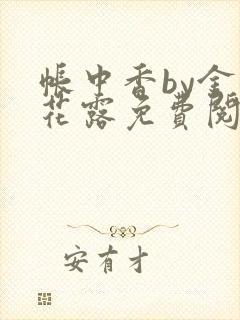 帐中香by金
花露免費閱
安有才